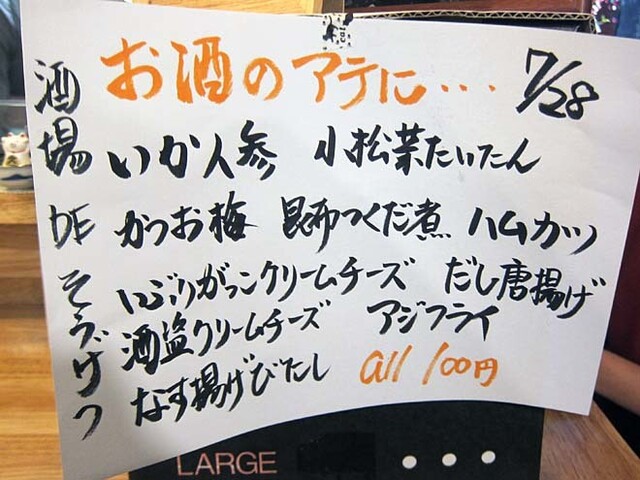 お酒のアテに・・・ 7/28
酒場DEそうげつ
いか人参 小松菜たいたん
かつお梅 昆布つくだ煮 ハムカツ
いぶりがっこクリームチーズ だし唐揚げ
酒盗クリームチーズ アジフライ
なす揚げびたし all 100円
LARGE